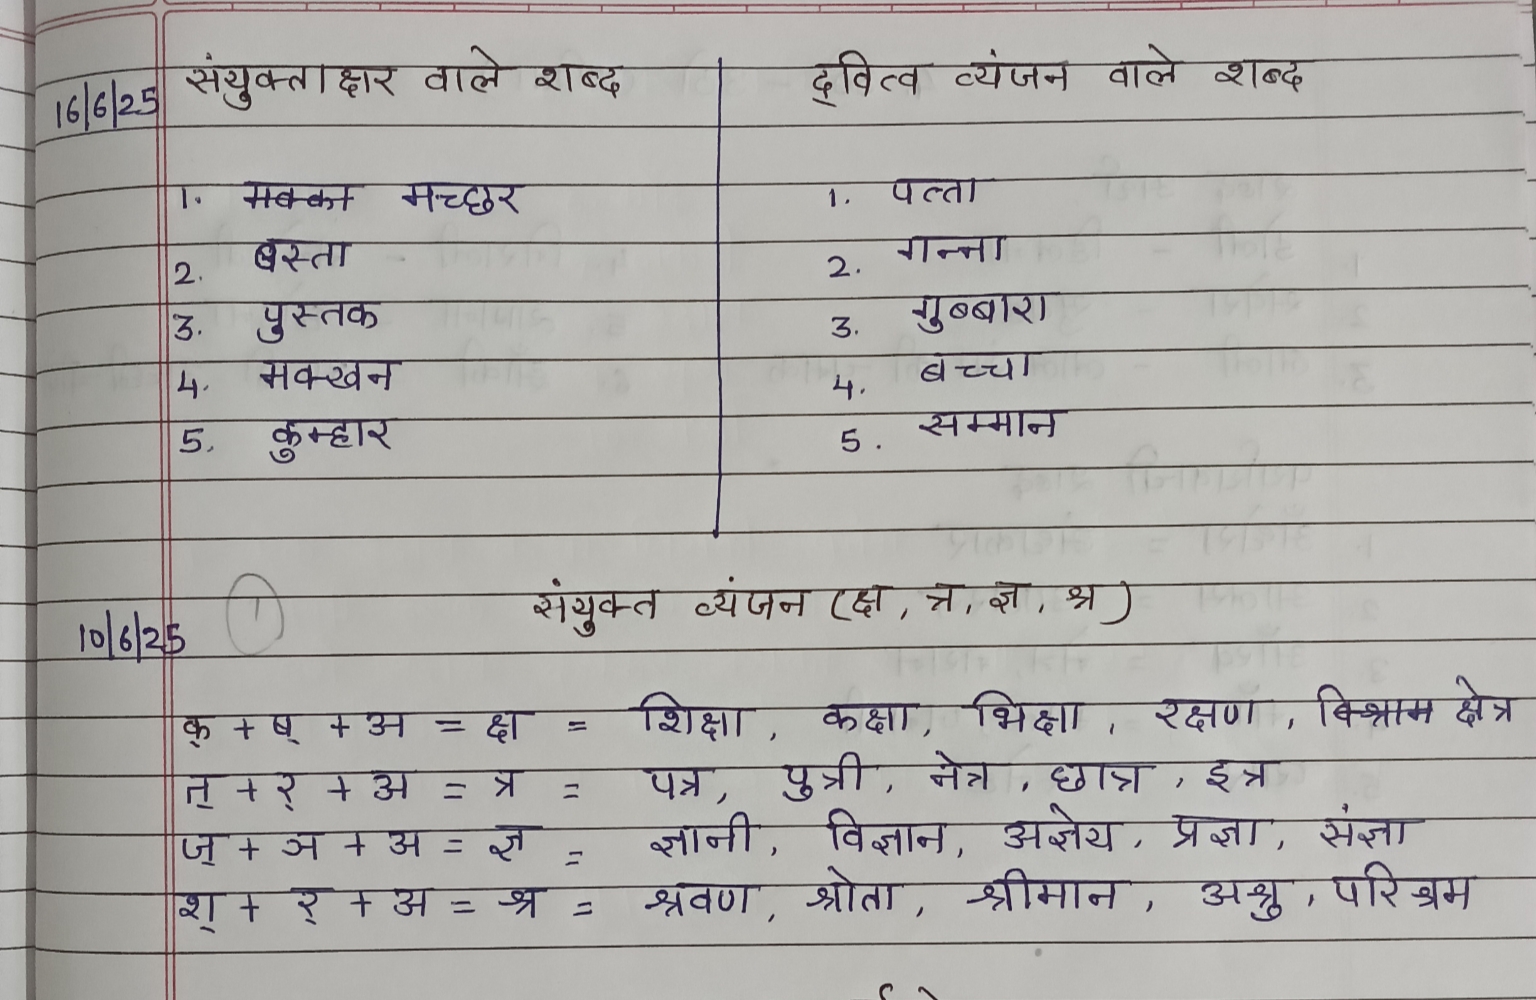 संयुक्ताक्षर वाले शब्द
द्वित्व व्यंजन वाले शब्द
16/6/25
1. मक्का मच्छर
1. पत्ता
2. बस्ता
2. गन्ना
3. पुस्तक
3. गुब्बारा
4. मक्खन
4. बच्चा
5. कुम्हार
5. सम्मान
1
संयुक्त व्यंजन (क्ष, त्र, ज्ञ, श्र)
10/6/25
क् + ष् + अ = क्ष = शिक्षा, कक्षा, भिक्षा, रक्षण, विश्राम क्षेत्र
त् + र् + अ = त्र = पत्र, पुत्री, नेत्र, छात्र, इत्र
ज् + ञ + अ = ज्ञ = ज्ञानी, विज्ञान, अज्ञेय, प्रज्ञा, संज्ञा
श् + र् + अ = श्र = श्रवण, श्रोता, श्रीमान, अश्रु, परिश्रम